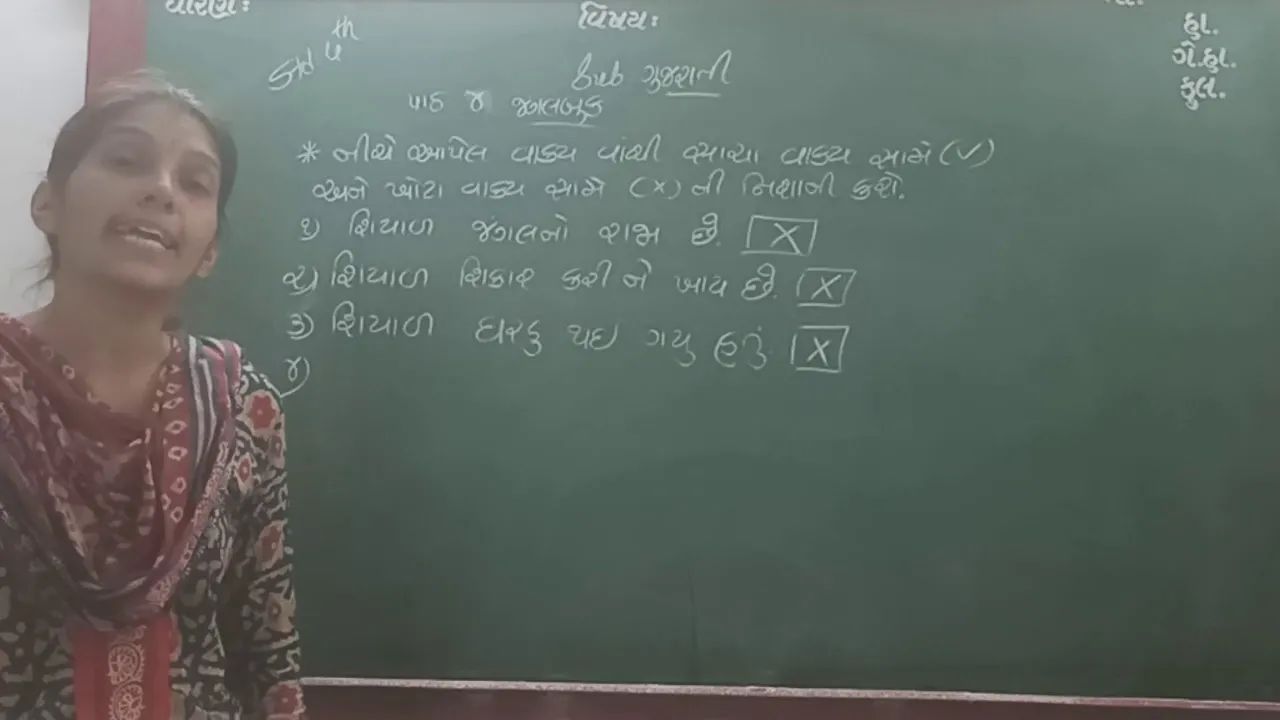 ધોરણ:
વિષય:
હા.
ગે.હા.
કુલ.
ધો ૫ th
Sub ગુજરાતી
પાઠ ૪ જંગલબુક
* નીચે આપેલ વાક્ય વાંચી સાચા વાક્ય સામે (✓)
અને ખોટા વાક્ય સામે (X) ની નિશાની કરો.
૧) શિયાળ જંગલનો રાજા છે. X
૨) શિયાળ શિકાર કરી ને ખાય છે. X
૩) શિયાળ ઘરકુ થઇ ગયુ હતું X
૪)